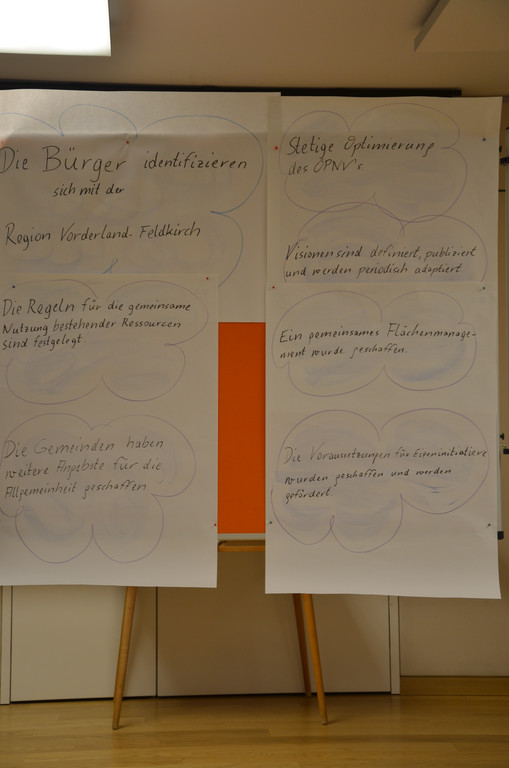 Die Bürger identifizieren
sich mit der
Region Vorderland-Feldkirch
Die Regeln für die gemeinsame
Nutzung bestehender Ressourcen
sind festgelegt.
Die Gemeinden haben
weitere Angebote für die
Allgemeinheit geschaffen
Stetige Optimierung
des ÖPNV's
Visionen sind definiert, publiziert
und werden periodisch adaptiert
Ein gemeinsames Flächenmanage-
ment wurde geschaffen.
Die Voraussetzungen für Eigeninitiative
wurden geschaffen und werden
gefördert.